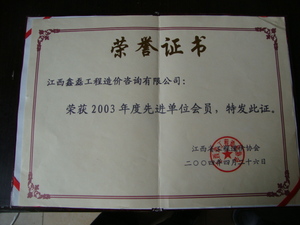 荣誉证书
江西鑫磊工程造价咨询有限公司：
荣获2003年度先进单位会员，特发此证。
江西省工程造价协会
二〇〇四年四月二十六日